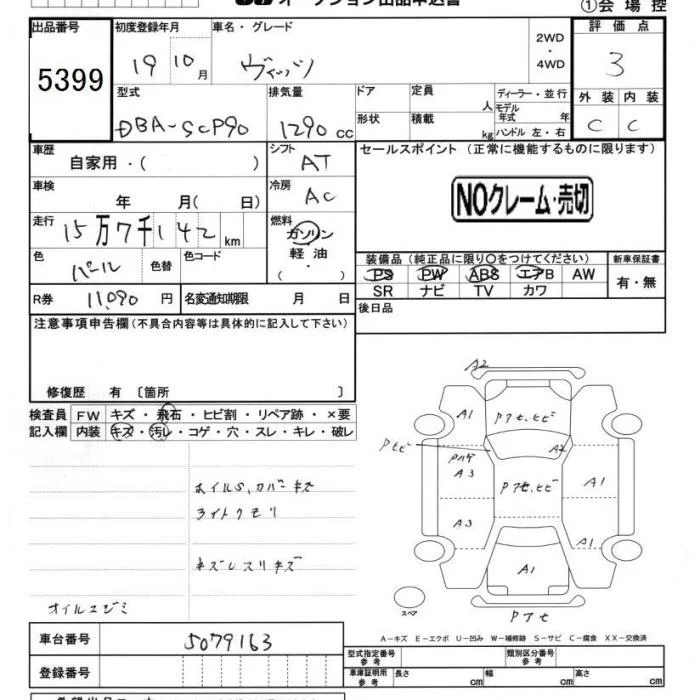 オークション出品申込書
①会場控
出品番号 初度登録年月 車名・グレード 2WD・4WD 評価点
5399 19 10月 ヴィッツ 3
型式 排気量 ドア 定員 人 ディーラー・並行 外装 内装
DBA-SCP90 1290cc 形状 積載 kg モデル年式 年 ハンドル 左・右 C C
車歴 自家用・( ) シフト AT セールスポイント (正常に機能するものに限ります)
車検 年 月( 日) 冷房 AC NOクレーム・売切
走行 15万7千142km 燃料 ガソリン 軽油 ( ・ )
色 パール 色替 色コード 装備品 (純正品に限り〇をつけてください) 新車保証書
PS PW ABS エアB AW 有・無
SR ナビ TV カワ
R券 11,090円 名変通知期限 月 日 後日品
注意事項申告欄(不具合内容等は具体的に記入して下さい)
修復歴 有 〔箇所 〕
検査員 FW キズ・飛石・ヒビ割・リペア跡・×要
記入欄 内装 キズ・汚レ・コゲ・穴・スレ・キレ・破レ
ホイルS,カバーキズ
ライトクモリ
オイルニジミ
A2
A1 Pアセ,ヒビ
Pヒビ A2
Pハゲ
A3 Pアセ,ヒビ A1
A3 A1
A1
スペア Pアセ
A-キズ E-エクボ U-凹み W-補修跡 S-サビ C-腐食 XX-交換済
車台番号 5079163 型式指定番号 参考 類別区分番号 参考
登録番号 車庫証明用 参考 長さ cm 幅 cm 高さ cm